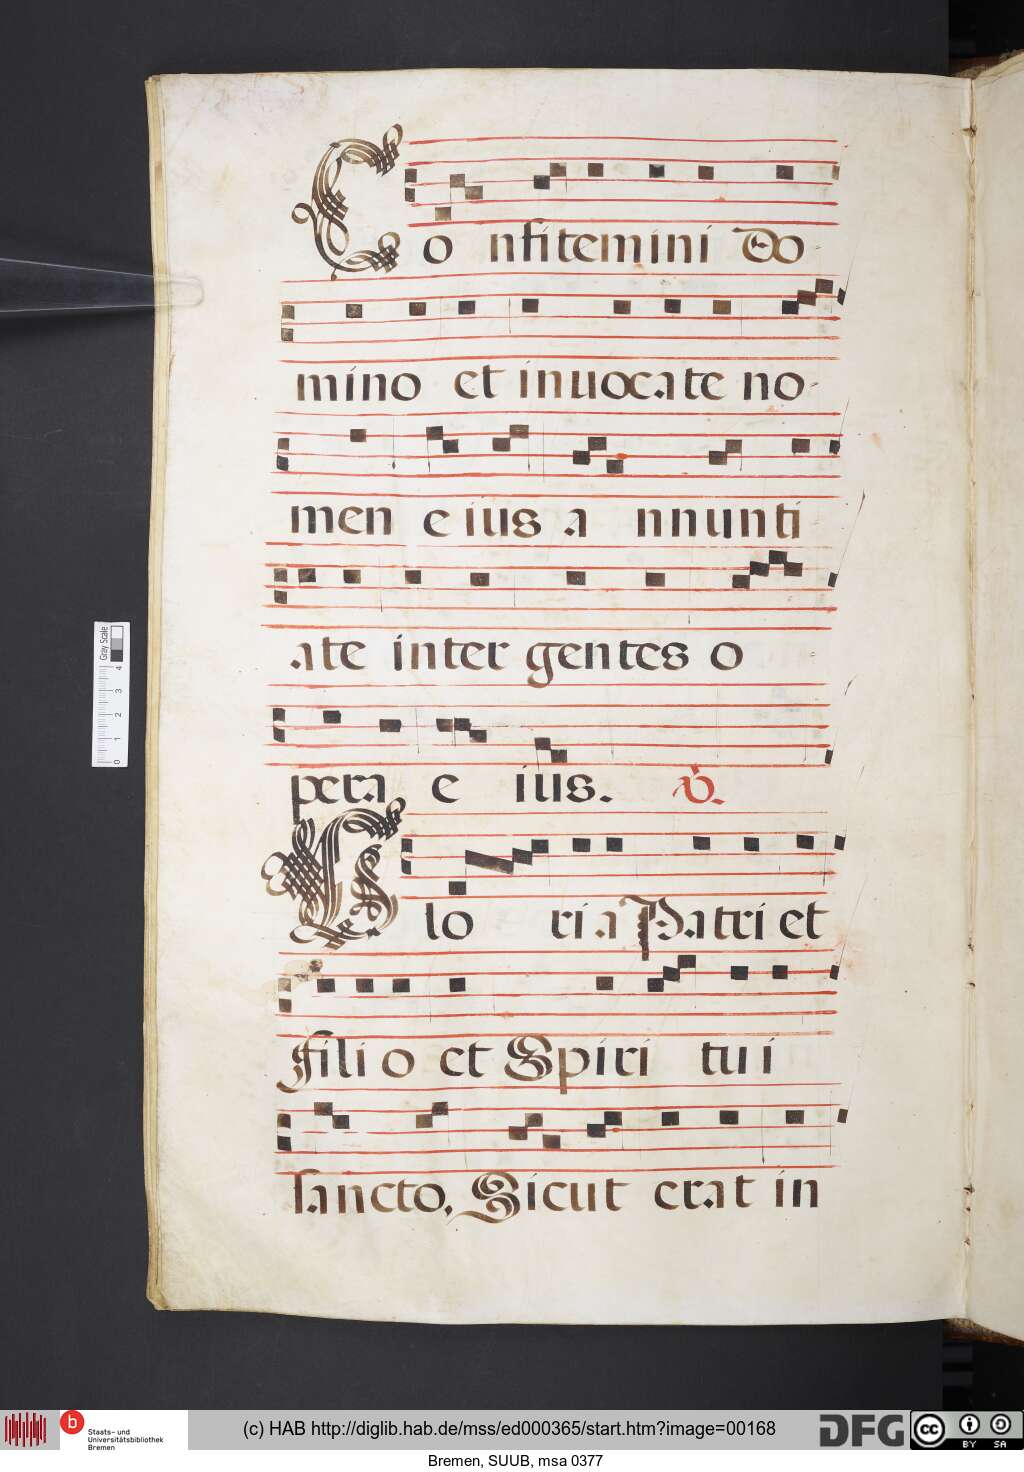 Co nfitemini Do-
mino et inuocate no-
men eius a nnunti
ate inter gentes o
pera e ius. V.
Glo ria Patri et
filio et Spiri tui
sancto, Sicut erat in
Gray Scale
0 1 2 3 4
b
Staats- und
Universitätsbibliothek
Bremen
(c) HAB http://diglib.hab.de/mss/ed000365/start.htm?image=00168
DFG
cc BY SA
Bremen, SUUB, msa 0377